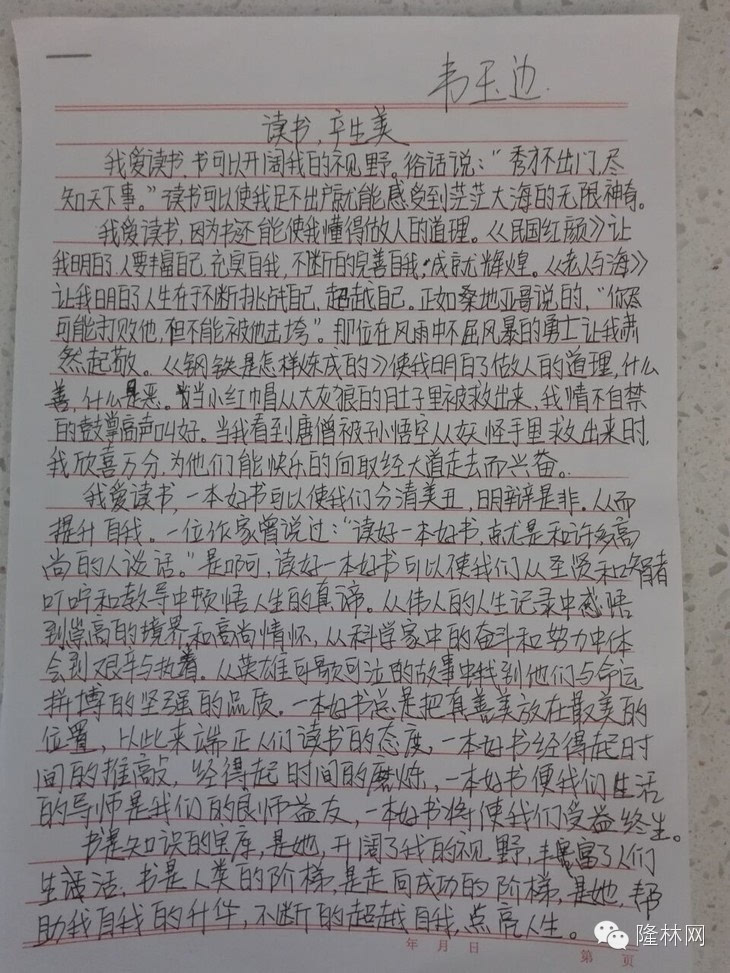 韦玉边
读书,辛生美
我爱读书,书可以开阔我的视野。俗话说:“秀才不出门,尽
知天下事。”读书可以使我足不出户就能感受到茫茫大海的无限神奇。
我爱读书,因为书还能使我懂得做人的道理。《民国红颜》让
我明白了,人要丰富自己,充实自我,不断的完善自我,成就辉煌。《老人与海》
让我明白了人生在于不断挑战自己,超越自己。正如桑地亚哥说的,“你尽
可能打败他,但不能被他击垮”。那位在风雨中不屈风暴的勇士让我肃
然起敬。《钢铁是怎样炼成的》使我明白了做人的道理,什么
善,什么是恶。当小红帽从大灰狼的肚子里被救出来,我情不自禁
的鼓掌高声叫好。当我看到唐僧被孙悟空从妖怪手里救出来时,
我欣喜万分,为他们能快乐的向取经大道走去而兴奋。
我爱读书,一本好书可以使我们分清美丑,明辨是非。从而
提升自我。一位作家曾说过:“读好一本好书,就是和许多高
尚的人谈话。”是啊,读好一本好书可以使我们从圣贤和智者
叮咛和教导中顿悟人生的真谛。从伟人的人生记录中感悟
到崇高的境界和高尚情怀,从科学家中的奋斗和努力中体
会到艰辛与执着。从英雄可歌可泣的故事中找到他们与命运
拼搏的坚强的品质。一本好书总是把真善美放在最美的
位置,以此来端正人们读书的态度。一本好书经得起时
间的推敲,经得起时间的磨炼,一本好书便我们生活
的导师是我们的良师益友,一本好书将使我们受益终生。
书是知识的宝库,是她,开阔了我的视野,丰富了人们
生活,书是人类的阶梯,是走向成功的阶梯,是她,帮
助我自我的升华,不断的超越自我,点亮人生。
年 月 日
第 页
隆林网